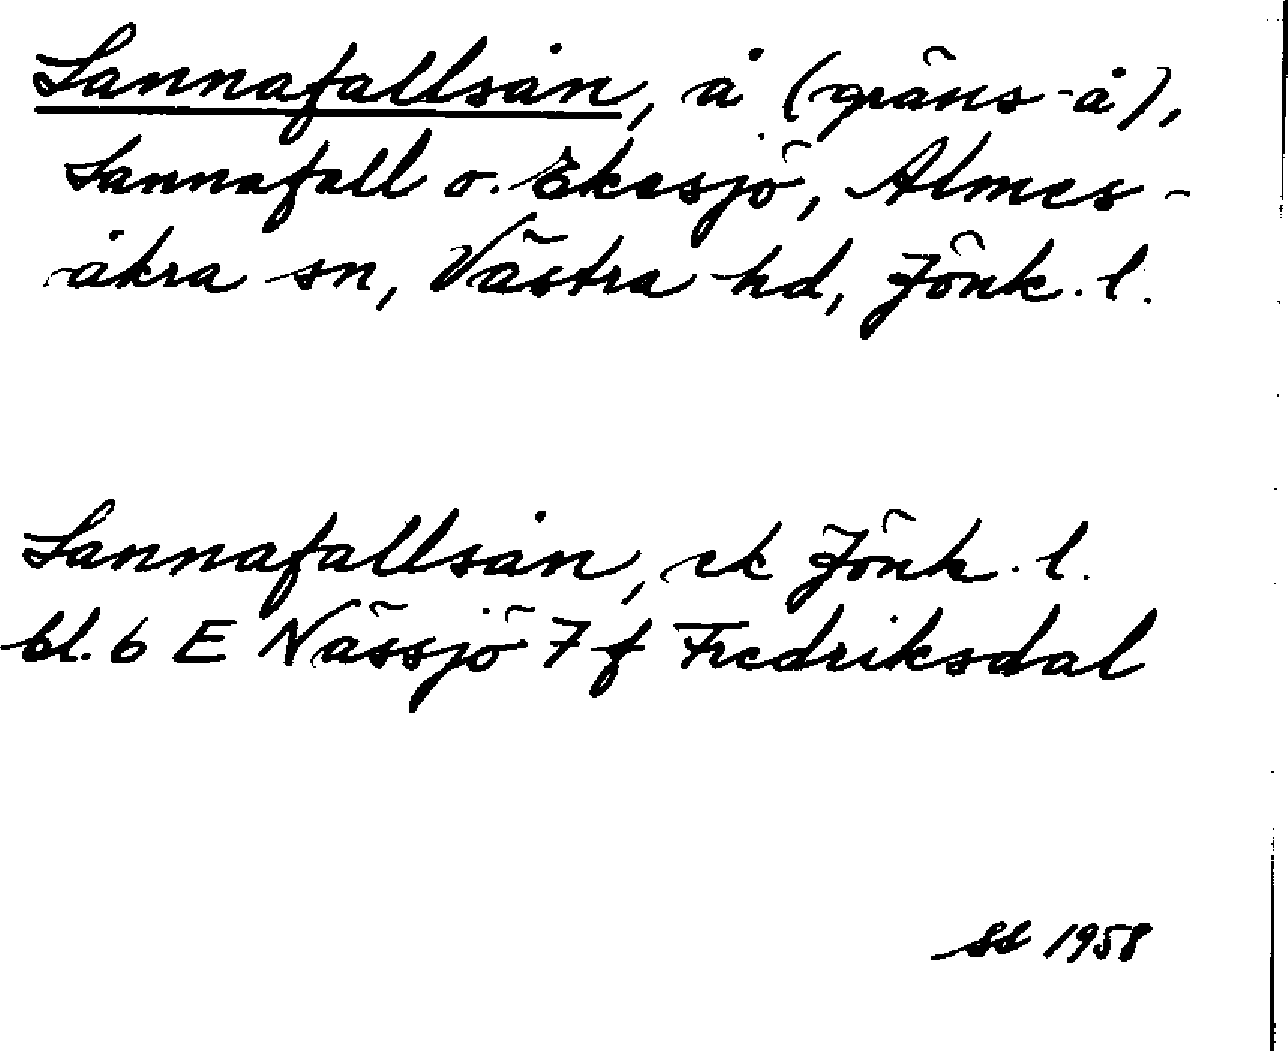 Sannafallsån, å (gräns-å),
Sannafall o. Ekesjö, Almes-
åkra sn, Västra hd, Jönk. l.
Sannafallsån, ek Jönk. l.
bl. 6 E Nässjö 7 f Fredriksdal
SS 1958